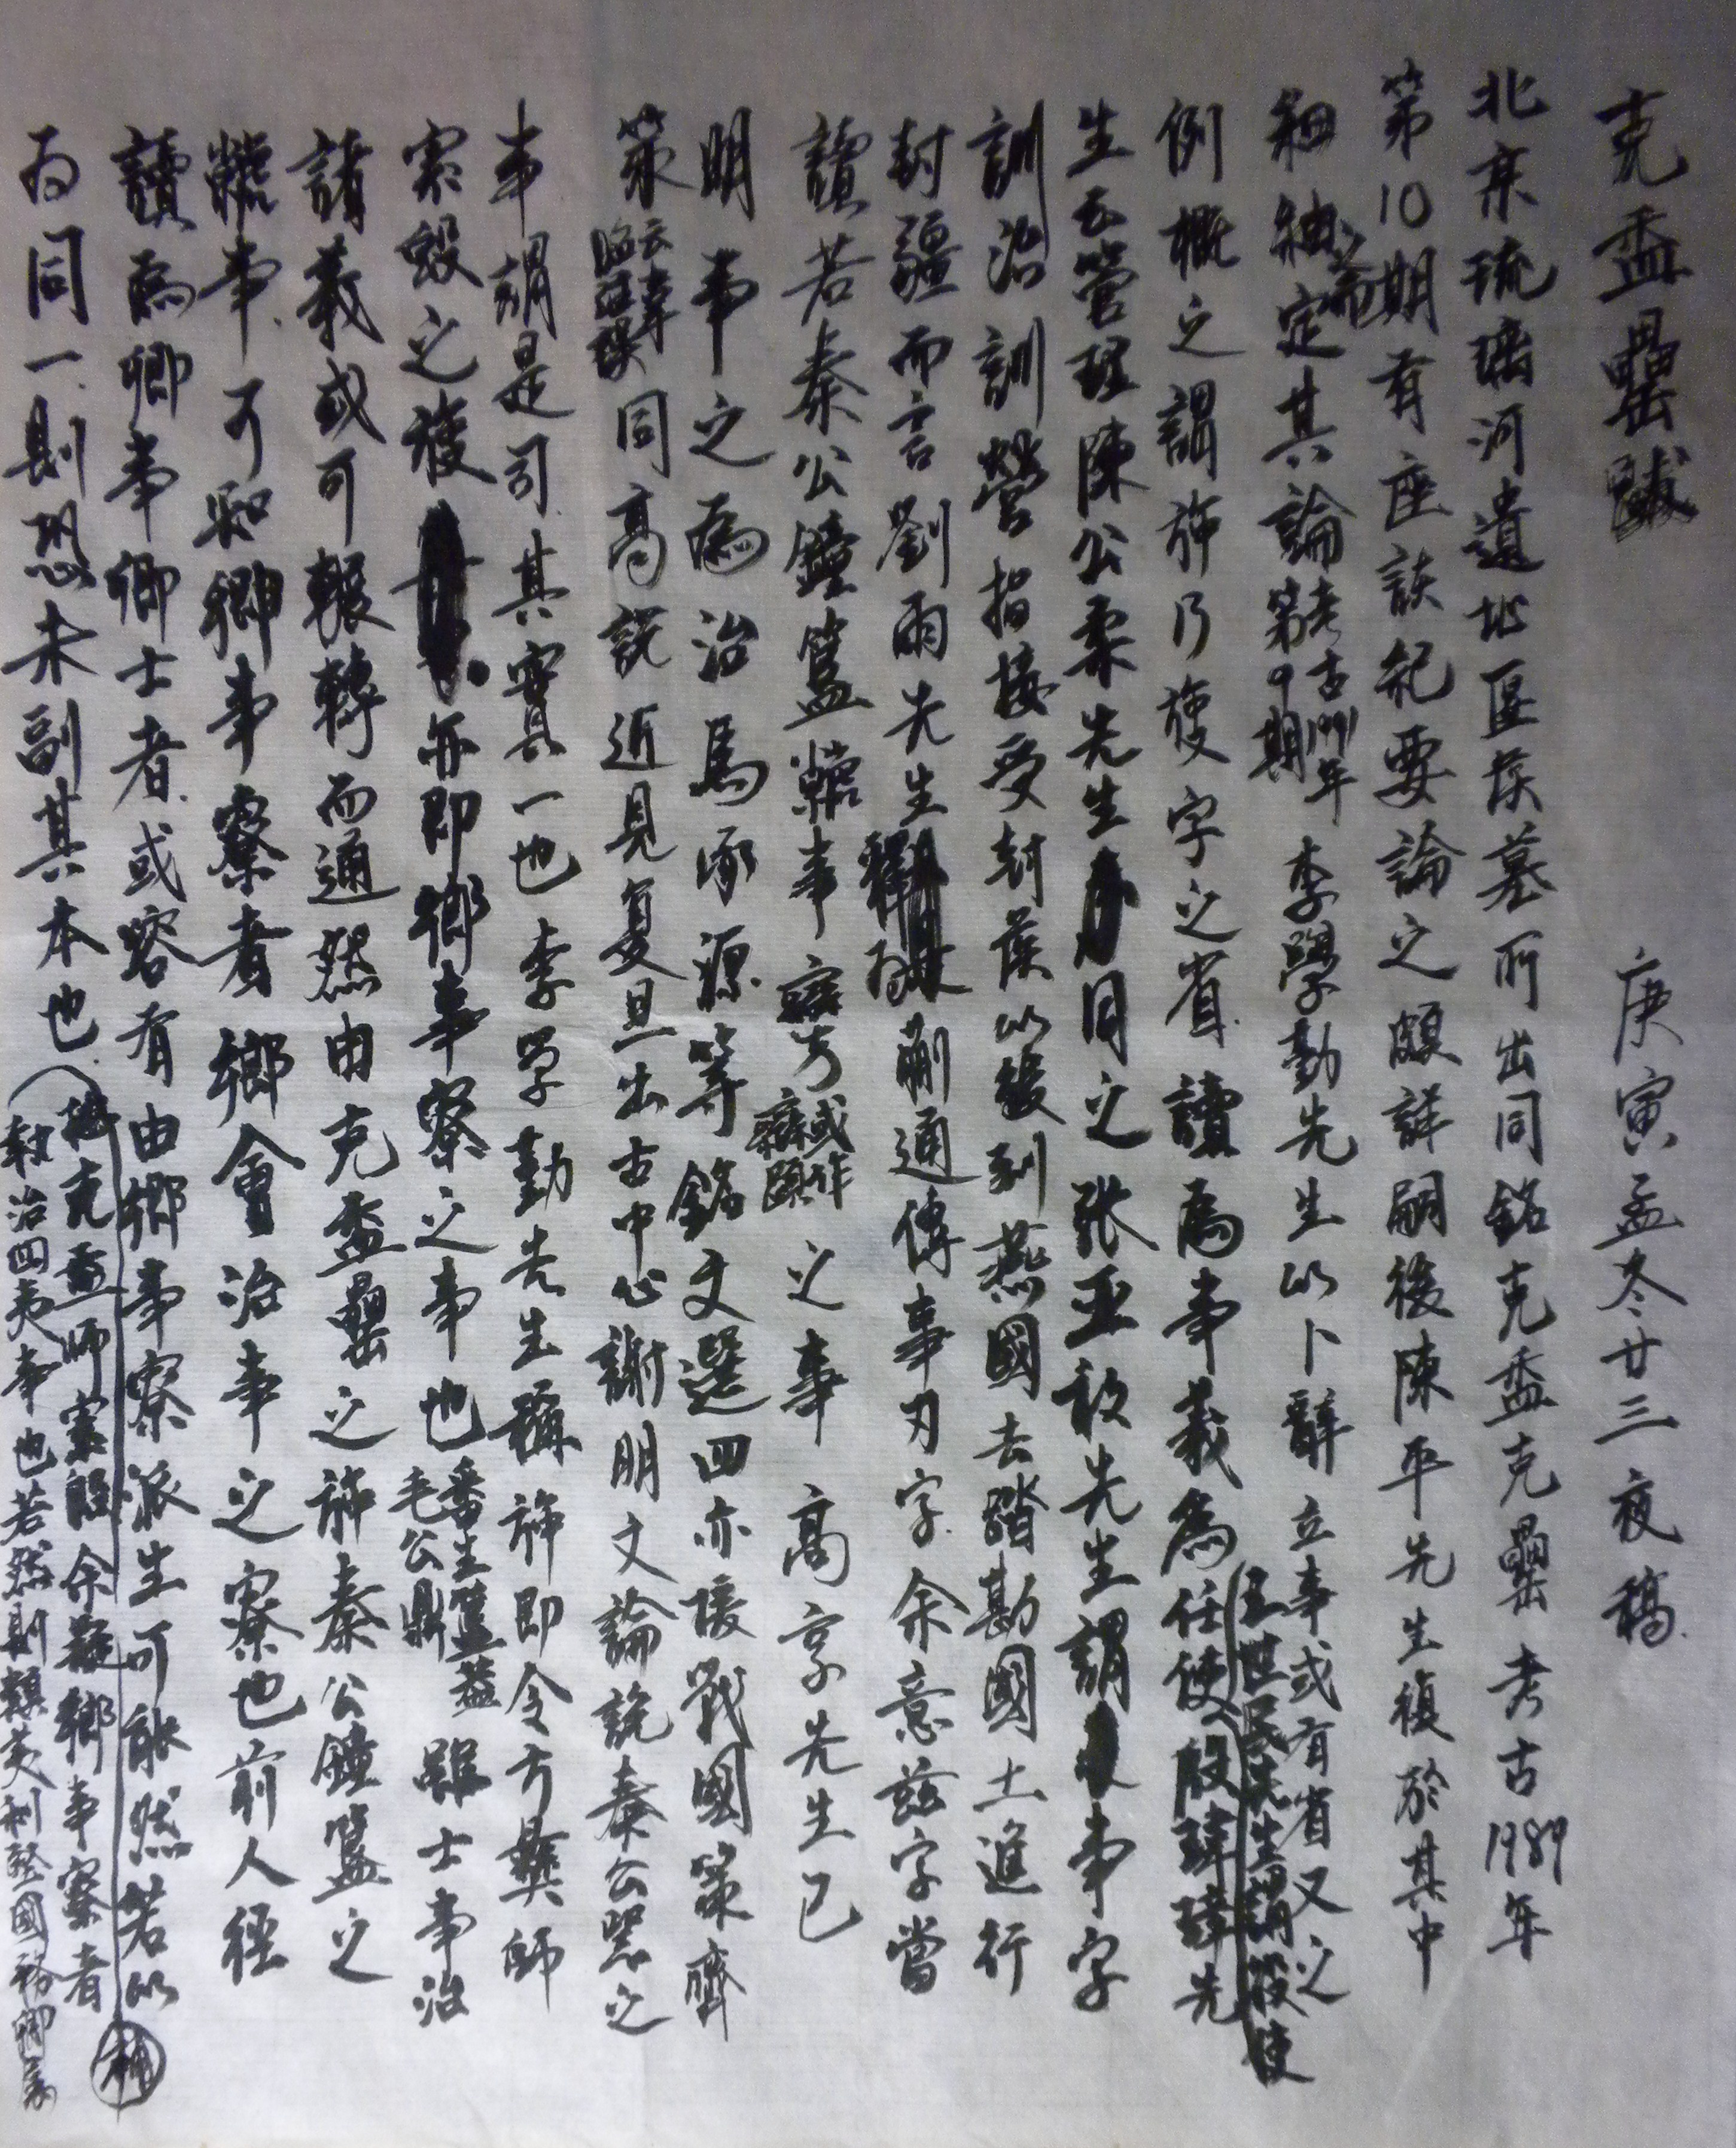 克盉罍跋 庚寅孟冬廿三夜稿
北京琉璃河遺址區矦墓所出同銘克盉克罍考古1989年
第10期有座談紀要論之頗詳嗣後陳平先生復於其中
細紬定其論考古1991年第9期李學勤先生以卜辭立事或有省又之
例概之謂旆乃 字之省讀為事義為任使殷瑋璋先
王世民先生謂役使
生云管理陳公柔先生同之張亞初先生謂事字
訓治訓營指接受封矦以後到燕國去踏勘國土進行
封疆而言劉雨先生釋為剚通傳事刃字余意茲字當
讀若秦公鐘簋 事 方或作 之事高亨先生已
明事之為治馬承源等銘文選四亦援戰國策齊
策云韋昭注 同高說近見复旦出古中心謝明文論說秦公器之
事謂是司其實一也李學勤先生稱旆即令方彝師
㝨 之 亦即卿事寮之事也番生簋蓋毛公鼎雖士事治
諸義或可輾轉而通然由克盉罍之旆秦公鐘簋之
事可知卿事寮者鄉會治事之寮也前人徑
讀為卿事卿士者或容有由鄉事寮派生可能然若以
為同一則恐未副其本也
克盉師㝨 余疑鄉事寮者
敕治四夷事也若然則類英利 國務卿
補